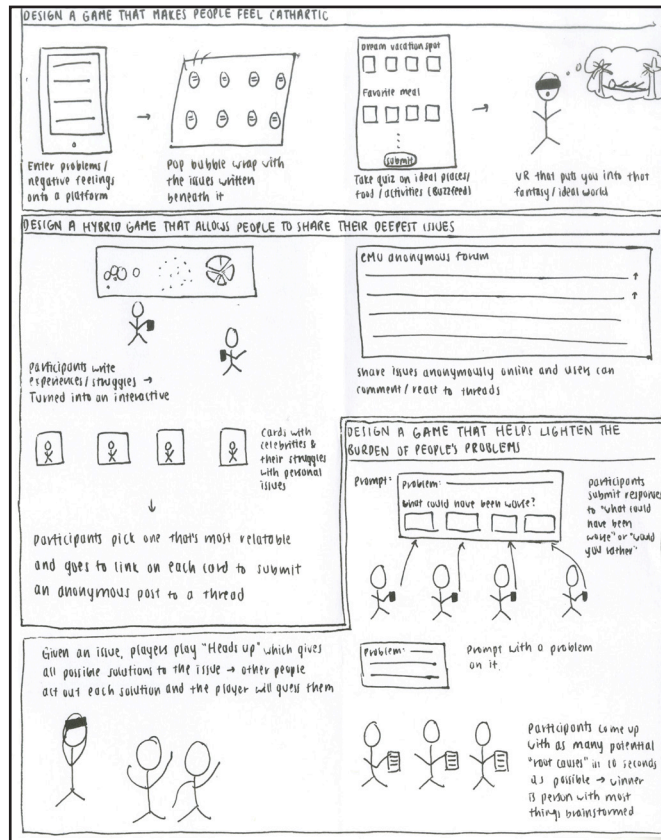 DESIGN A GAME THAT MAKES PEOPLE FEEL CATHARTIC
Enter problems/
negative feelings
onto a platform
Pop bubble wrap with
the issues written
beneath it
Dream vacation spot
Favorite meal
submit
Take quiz on ideal places/
food/activities (Buzzfeed)
VR that puts you into that
fantasy/ideal world
DESIGN A HYBRID GAME THAT ALLOWS PEOPLE TO SHARE THEIR DEEPEST ISSUES
participants write
experiences/struggles →
Turned into an interactive
CMU anonymous forum
share issues anonymously online and users can
comment/react to threads
cards with
celebrities &
their struggles
with personal
issues
participants pick one that's most relatable
and goes to link on each card to submit
an anonymous post to a thread
DESIGN A GAME THAT HELPS LIGHTEN THE
BURDEN OF PEOPLE'S PROBLEMS
Prompt:
Problem:
What could have been worse?
participants
submit responses
to "what could
have been
worse" or "would
you rather"
Given an issue, players play "Heads up" which gives
all possible solutions to the issue → other people
act out each solution and the player will guess them
Problem:
Prompt with a problem
on it.
Participants come up
with as many potential
"root causes" in 10 seconds
as possible → winner
is person with most
things brainstormed